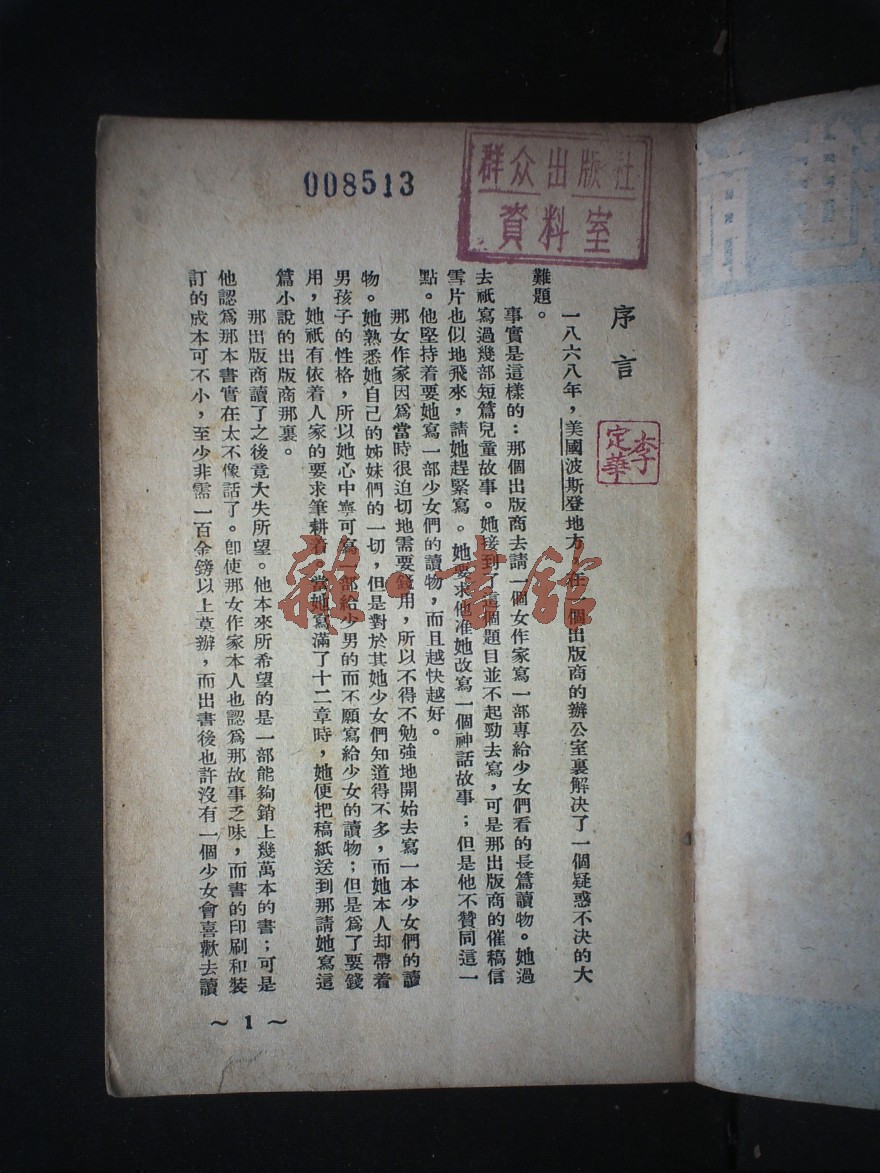 008513
群众出版社
資料室
序言
李定華
一八六八年，美國波斯登地方，在一個出版商的辦公室裏解决了一個疑惑不决的大
難題。
事實是這樣的：那個出版商去請一個女作家寫一部專給少女們看的長篇讀物。她過
去祇寫過幾部短篇兒童故事。她接到了這個題目並不起勁去寫，可是那出版商的催稿信
雪片也似地飛來，請她趕緊寫。她要求他准她改寫一個神話故事；但是他不贊同這一
點。他堅持着要她寫一部少女們的讀物，而且越快越好。
那女作家因爲當時很迫切地需要錢用，所以不得不勉強地開始去寫一本少女們的讀
物。她熟悉她自己的姊妹們的一切，但是對於其她少女們知道得不多，而她本人却帶着
男孩子的性格，所以她心中寧可寫一部給少男的而不願寫給少女的讀物；但是爲了要錢
用，她祇有依着人家的要求筆耕着。當她寫滿了十二章時，她便把稿紙送到那請她寫這
篇小說的出版商那裏。
那出版商讀了之後竟大失所望。他本來所希望的是一部能夠銷上幾萬本的書；可是
他認爲那本書實在太不像話了。卽使那女作家本人也認爲那故事乏味，而書的印刷和裝
訂的成本可不小，至少非需一百金鎊以上莫辦，而出書後也許沒有一個少女會喜歡去讀
～1～
雜·書館